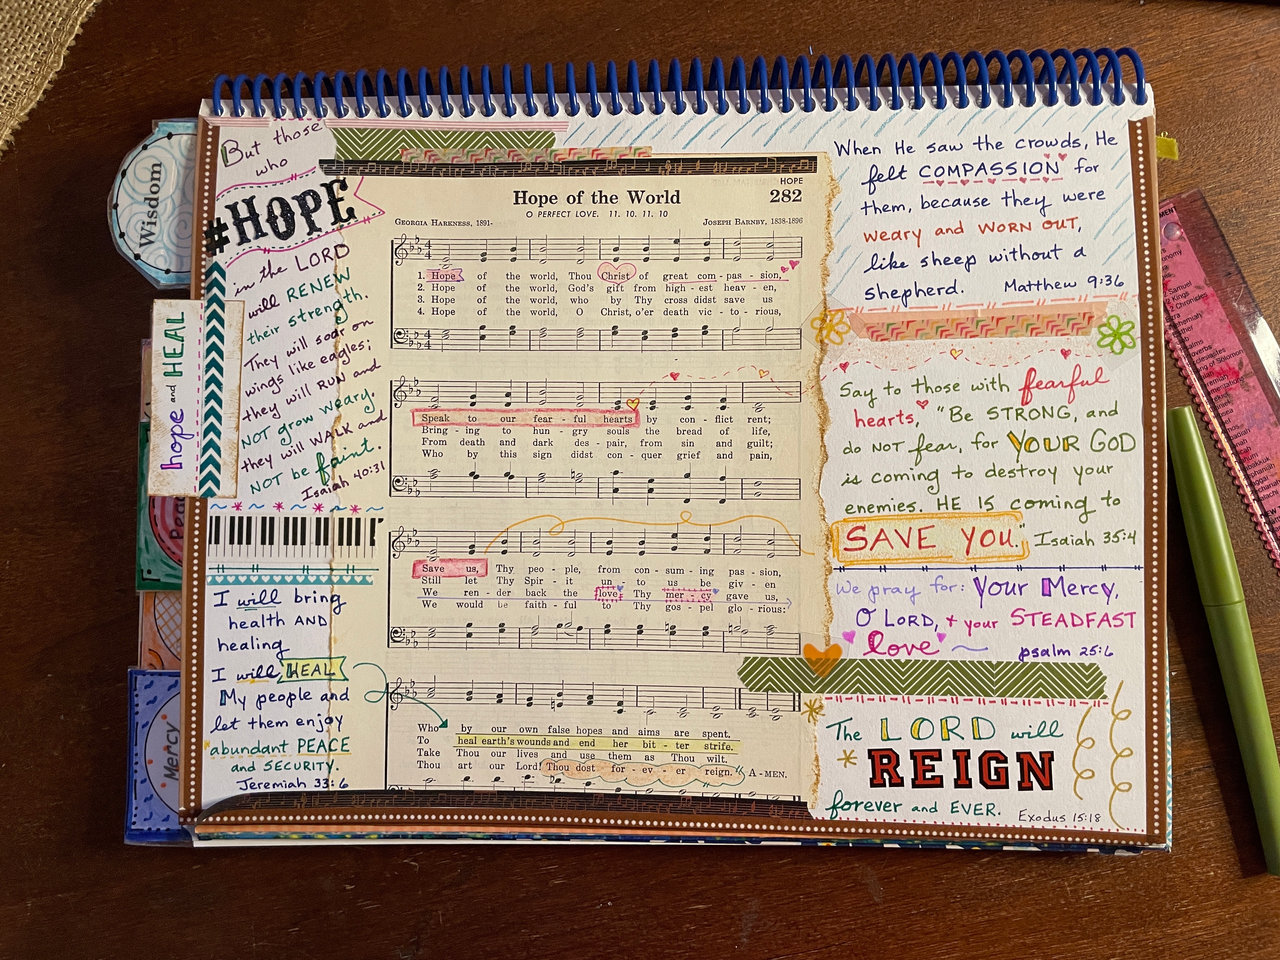 Wisdom
hope and HEAL
Mercy
But those
who
#HOPE
in the LORD
will RENEW
their strength.
They will soar on
wings like eagles;
they will RUN and
NOT grow weary,
they will WALK and
NOT BE faint.
Isaiah 40:31
I will bring
health AND
healing
I will HEAL
My people and
let them enjoy
abundant PEACE
and SECURITY.
Jeremiah 33:6
HOPE
Hope of the World 282
O PERFECT LOVE. 11. 10. 11. 10
GEORGIA HARKNESS, 1891- JOSEPH BARNBY, 1838-1896
1. Hope of the world, Thou Christ of great com - pas - sion,
2. Hope of the world, God's gift from high - est heav - en,
3. Hope of the world, who by Thy cross didst save us
4. Hope of the world, O Christ, o'er death vic - to - rious,
Speak to our fear - ful hearts by con - flict rent;
Bring - ing to hun - gry souls the bread of life,
From death and dark des - pair, from sin and guilt;
Who by this sign didst con - quer grief and pain,
Save us, Thy peo - ple, from con - sum - ing pas - sion,
Still let Thy Spir - it un - to us be giv - en
We ren - der back the love Thy mer - cy gave us,
We would be faith - ful to Thy gos - pel glo - rious:
Who by our own false hopes and aims are spent.
To heal earth's wounds and end her bit - ter strife.
Take Thou our lives and use them as Thou wilt.
Thou art our Lord! Thou dost for - ev - er reign. A - MEN.
When He saw the crowds, He
felt COMPASSION for
them, because they were
weary and WORN OUT,
like sheep without a
shepherd. Matthew 9:36
Say to those with fearful
hearts, "Be STRONG, and
do NOT fear, for YOUR GOD
is coming to destroy your
enemies. HE IS coming to
SAVE YOU." Isaiah 35:4
We pray for: Your Mercy,
O LORD, + your STEADFAST
love
psalm 25:6
The LORD will
REIGN
forever and EVER. Exodus 15:18
Samuel
Kings
2 Chronicles